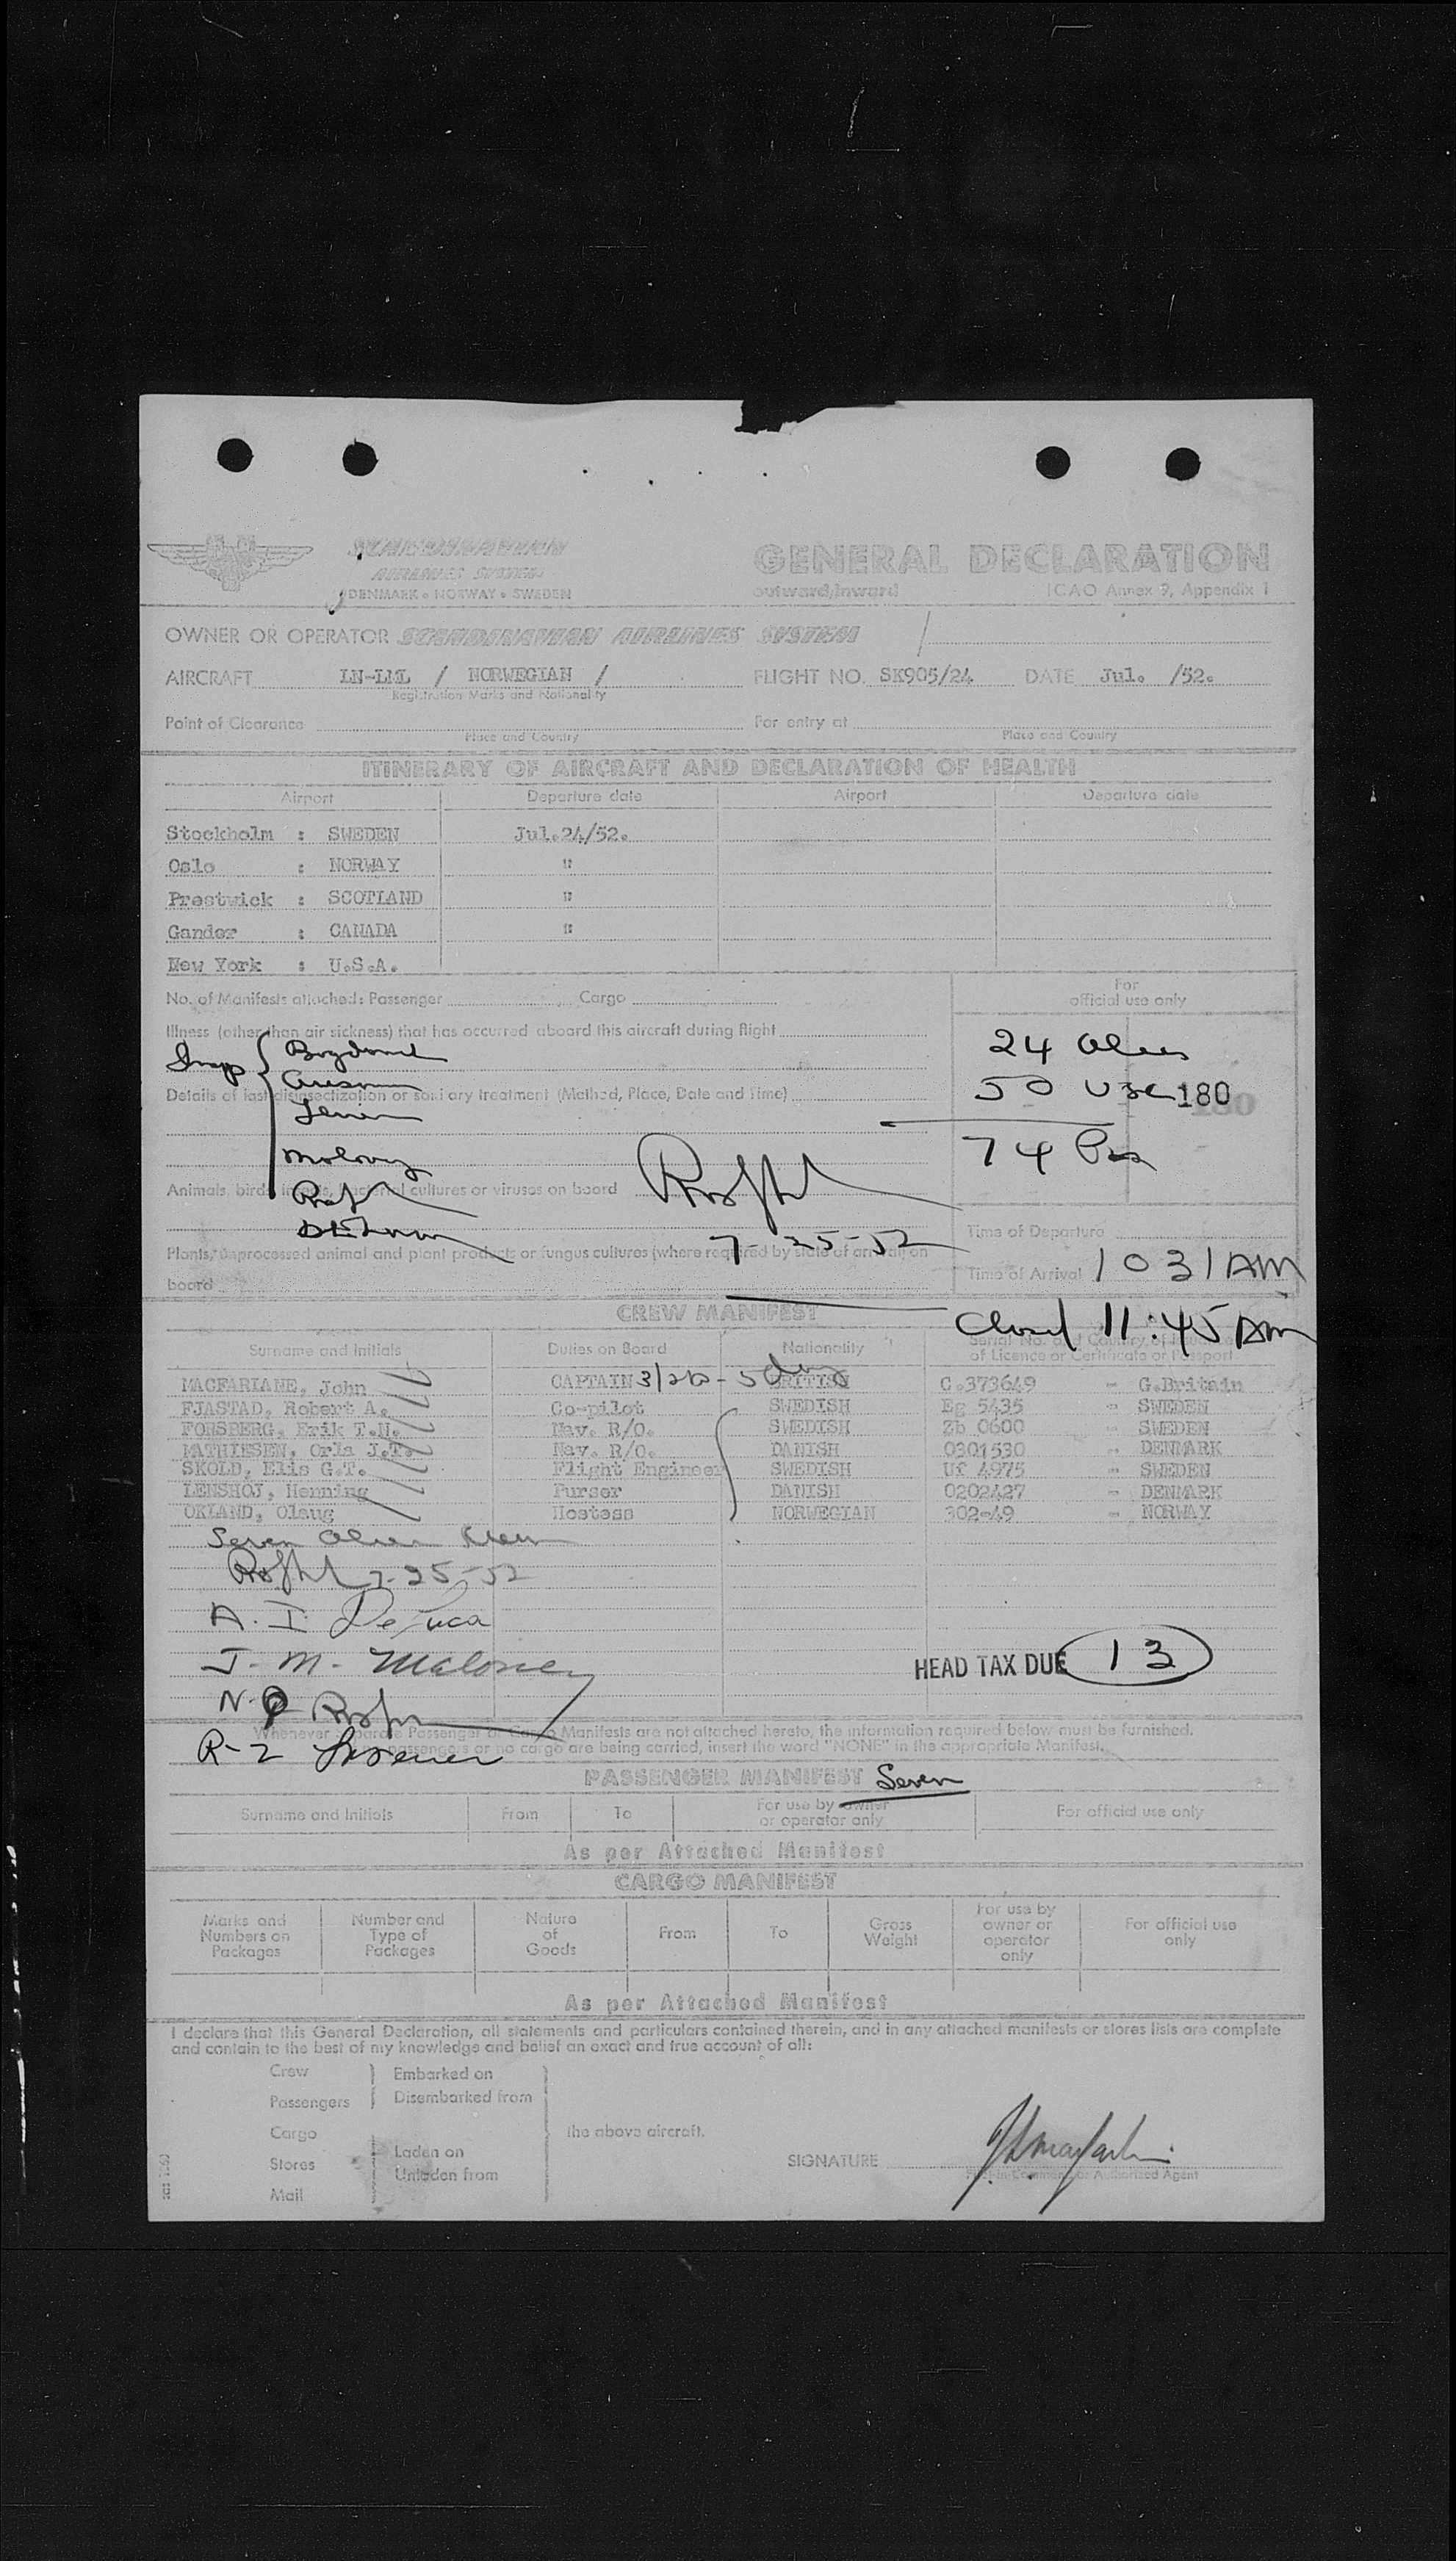 SCANDINAVIAN
AIRLINES SYSTEM
DENMARK • NORWAY • SWEDEN
GENERAL DECLARATION
outward/inward
ICAO Annex 9, Appendix 1
OWNER OR OPERATOR SCANDINAVIAN AIRLINES SYSTEM
AIRCRAFT LN-LML / NORWEGIAN / FLIGHT NO. SK905/24 DATE Jul. /52.
Registration Marks and Nationality
Point of Clearance For entry at
Place and Country Place and Country
ITINERARY OF AIRCRAFT AND DECLARATION OF HEALTH
Airport Departure date Airport Departure date
Stockholm : SWEDEN Jul.24/52.
Oslo : NORWAY "
Prestwick : SCOTLAND "
Gander : CANADA "
New York : U.S.A.
No. of Manifests attached: Passenger Cargo
For
official use only
Illness (other than air sickness) that has occurred aboard this aircraft during flight
24
Details of last disinsectization or sanitary treatment (Method, Place, Date and Time)
50 USC 180
74
Moloney
Animals, birds, insects, bacterial cultures or viruses on board
7-25-52
Plants, unprocessed animal and plant products or fungus cultures (where required by state of arrival) on
board
Time of Departure
Time of Arrival 1031 AM
Closed 11:45 AM
CREW MANIFEST
Surname and Initials Duties on Board Nationality Serial No. and Country of Issuance
of Licence or Certificate or Passport
MACFARLANE, John CAPTAIN BRITISH C.373649 - G.Britain
FJASTAD, Robert A. Co-pilot SWEDISH Eg 5435 - SWEDEN
FORSBERG, Erik T.N. Nav. R/O. SWEDISH Zb 0600 - SWEDEN
MATHIESEN, Orla J.T. Nav. R/O. DANISH 0301530 - DENMARK
SKOLD, Elis G.T. Flight Engineer SWEDISH Uf 4975 - SWEDEN
LENSHOJ, Henning Purser DANISH 0202427 - DENMARK
OKLAND, Olaug Hostess NORWEGIAN 302-49 - NORWAY
Seven Alien Crew
7-25-52
A. I. DeLuca
J. M. Maloney
HEAD TAX DUE 13
Whenever separate Passenger or Cargo Manifests are not attached hereto, the information required below must be furnished.
If no passengers or no cargo are being carried, insert the word "NONE" in the appropriate Manifest.
R-2
PASSENGER MANIFEST Seven
Surname and Initials From To For use by owner
or operator only For official use only
As per Attached Manifest
CARGO MANIFEST
Marks and
Numbers on
Packages
Number and
Type of
Packages
Nature
of
Goods
From
To
Gross
Weight
For use by
owner or
operator
only
For official use
only
As per Attached Manifest
I declare that this General Declaration, all statements and particulars contained therein, and in any attached manifests or stores lists are complete
and contain to the best of my knowledge and belief an exact and true account of all:
Crew Embarked on
Passengers Disembarked from
Cargo the above aircraft.
Stores Laden on
Mail Unladen from
SIGNATURE
Pilot-in-Command or Authorized Agent